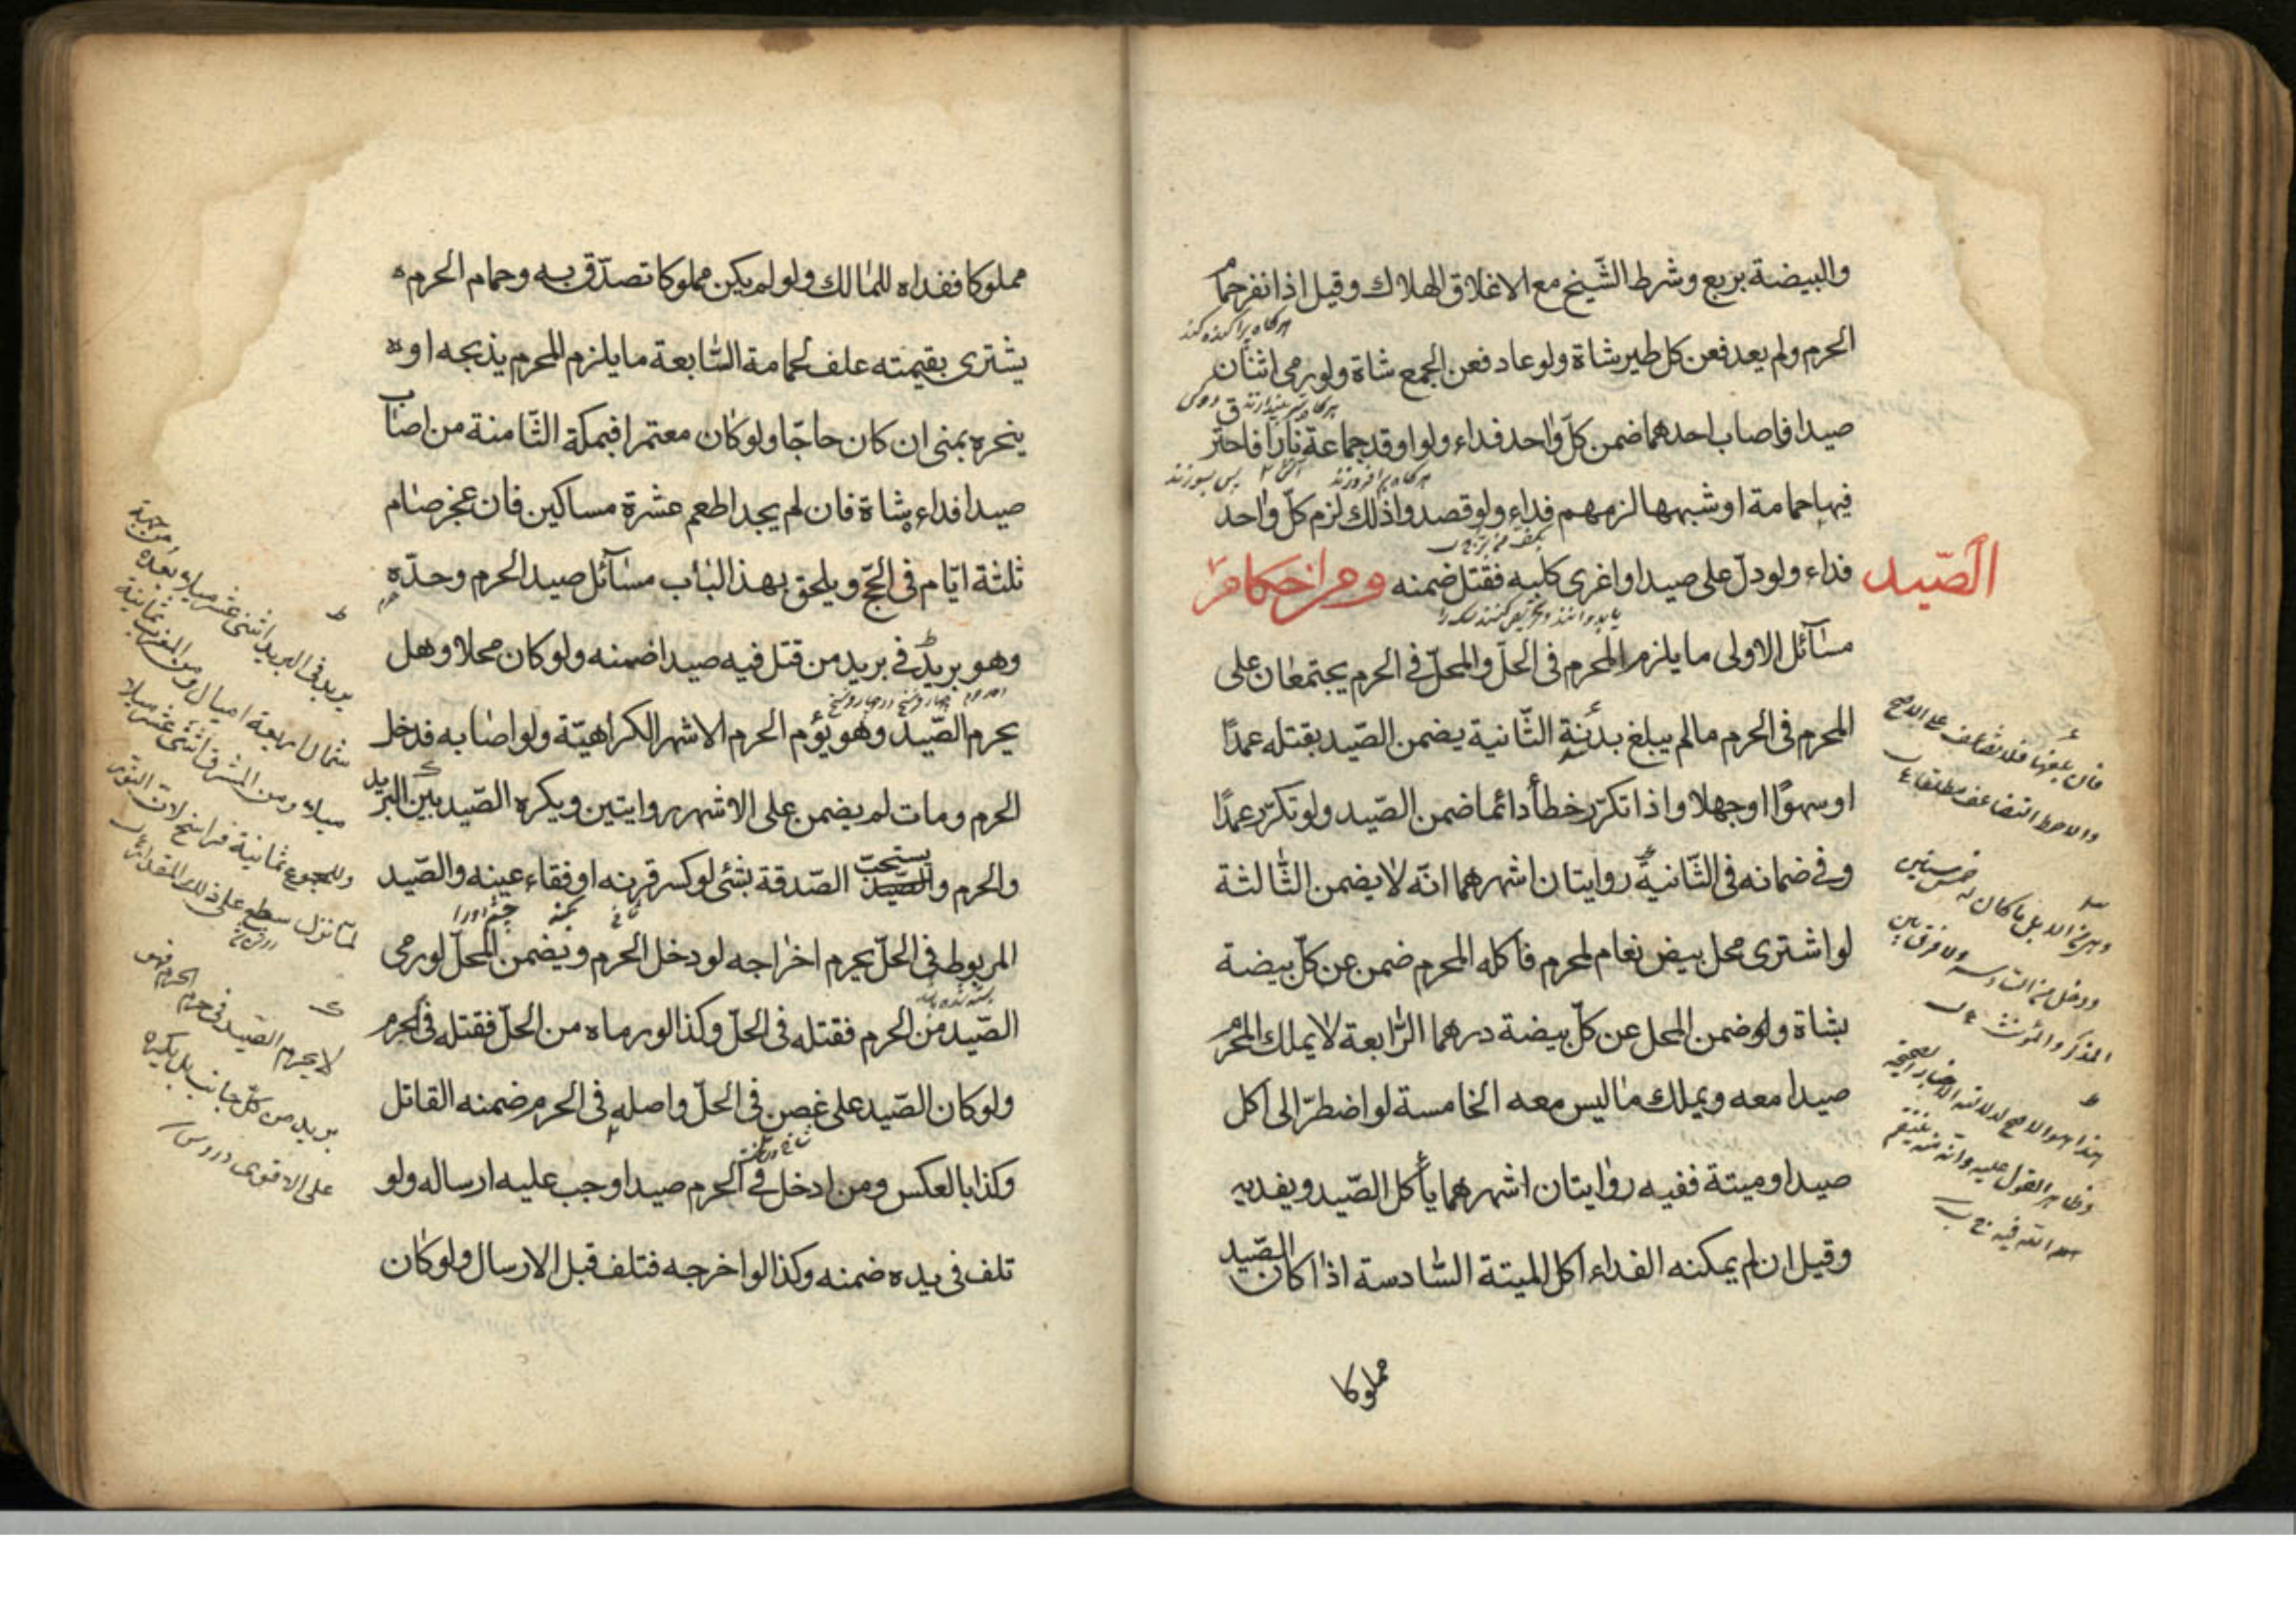 والبيضة بربع وشرط الشّيخ مع الاغلاق الهلاك وقيل اذا نفر حمام
الحرم ولم يعد فعن كل طير شاة ولو عاد فعن الجمع شاة ولو رمى اثنان
صيدا فاصاب احدهما ضمن كلّ واحد فداء ولو اوقد جماعة نارا فاحترق
فيها حمامة او شبهها لزمهم فداء ولو قصدوا ذلك لزم كلّ واحد
فداء ولو دلّ على صيد او اغرى كلبه فقتل ضمنه ومن احكام
الصّيد
مسآئل الاولى ما يلزم المحرم فى الحلّ والمحلّ فى الحرم يجتمعان على
المحرم فى الحرم ما لم يبلغ بدنة الثّانية يضمن الصّيد بقتله عمدًا
او سهوًا او جهلا واذا تكرّر خطأ دائما ضمن الصّيد ولو تكرّر عمدًا
وفى ضمانه فى الثّانية روايتان اشهرهما انّه لا يضمن الثّالثة
لو اشترى محل بيض نعام لمحرم فأكله المحرم ضمن عن كلّ بيضة
بشاة ولو ضمن المحل عن كلّ بيضة درهما الرّابعة لا يملك المحرم
صيدا معه ويملك ما ليس معه الخامسة لو اضطرّ الى اكل
صيد او ميتة ففيه روايتان اشهرهما يأكل الصّيد ويفديه
وقيل ان لم يمكنه الفداء اكل الميتة السّادسة اذا كان الصّيد
مملوكا
فان بلغها فلا تضاعف على الاصح
والاحوط التضاعف مطلقا
المذكر والمؤنث
هذا هو الاصح لدلالة الاخبار الصحيحة
مملوكا ففداه للمالك ولو لم يكن مملوكا تصدّق به وحمام الحرم
يشترى بقيمته علف لحمامة السّابعة ما يلزم المحرم يذبحه او
ينحره بمنى ان كان حاجّا ولو كان معتمرا فبمكة الثّامنة من اصاب
صيدا فداء شاة فان لم يجد اطعم عشرة مساكين فان عجز صام
ثلثة ايّام فى الحجّ ويلحق بهذا الباب مسآئل صيد الحرم وحدّه
وهو بريد فى بريد من قتل فيه صيدا ضمنه ولو كان محلا وهل
يحرم الصّيد وهو يؤم الحرم الاشهر الكراهيّة ولو اصابه فدخل
الحرم ومات لم يضمن على الاشهر روايتين ويكره الصّيد بين البريد
والحرم و الصّيد يستحبّ الصّدقة بشئ لو كسر قرنه او فقاء عينه والصّيد
المربوط فى الحلّ يحرم اخراجه لو دخل الحرم ويضمن المحلّ لو رمى
الصّيد من الحرم فقتله فى الحلّ وكذا لو رماه من الحلّ فقتله فى الحرم
ولو كان الصّيد على غصن فى الحلّ واصله فى الحرم ضمنه القاتل
وكذا بالعكس ومن ادخل فى الحرم صيدا وجب عليه ارساله ولو
تلف فى يده ضمنه وكذا لو اخرجه فتلف قبل الارسال ولو كان
شمال اربعة اميال ومن المغرب ثمانية
ميلا ومن المشرق اثنى عشر ميلا
لا يحرم الصّيد فى حرم الحرم فهو
بريد من كلّ جانب بل يكره
على الاقوى دروس